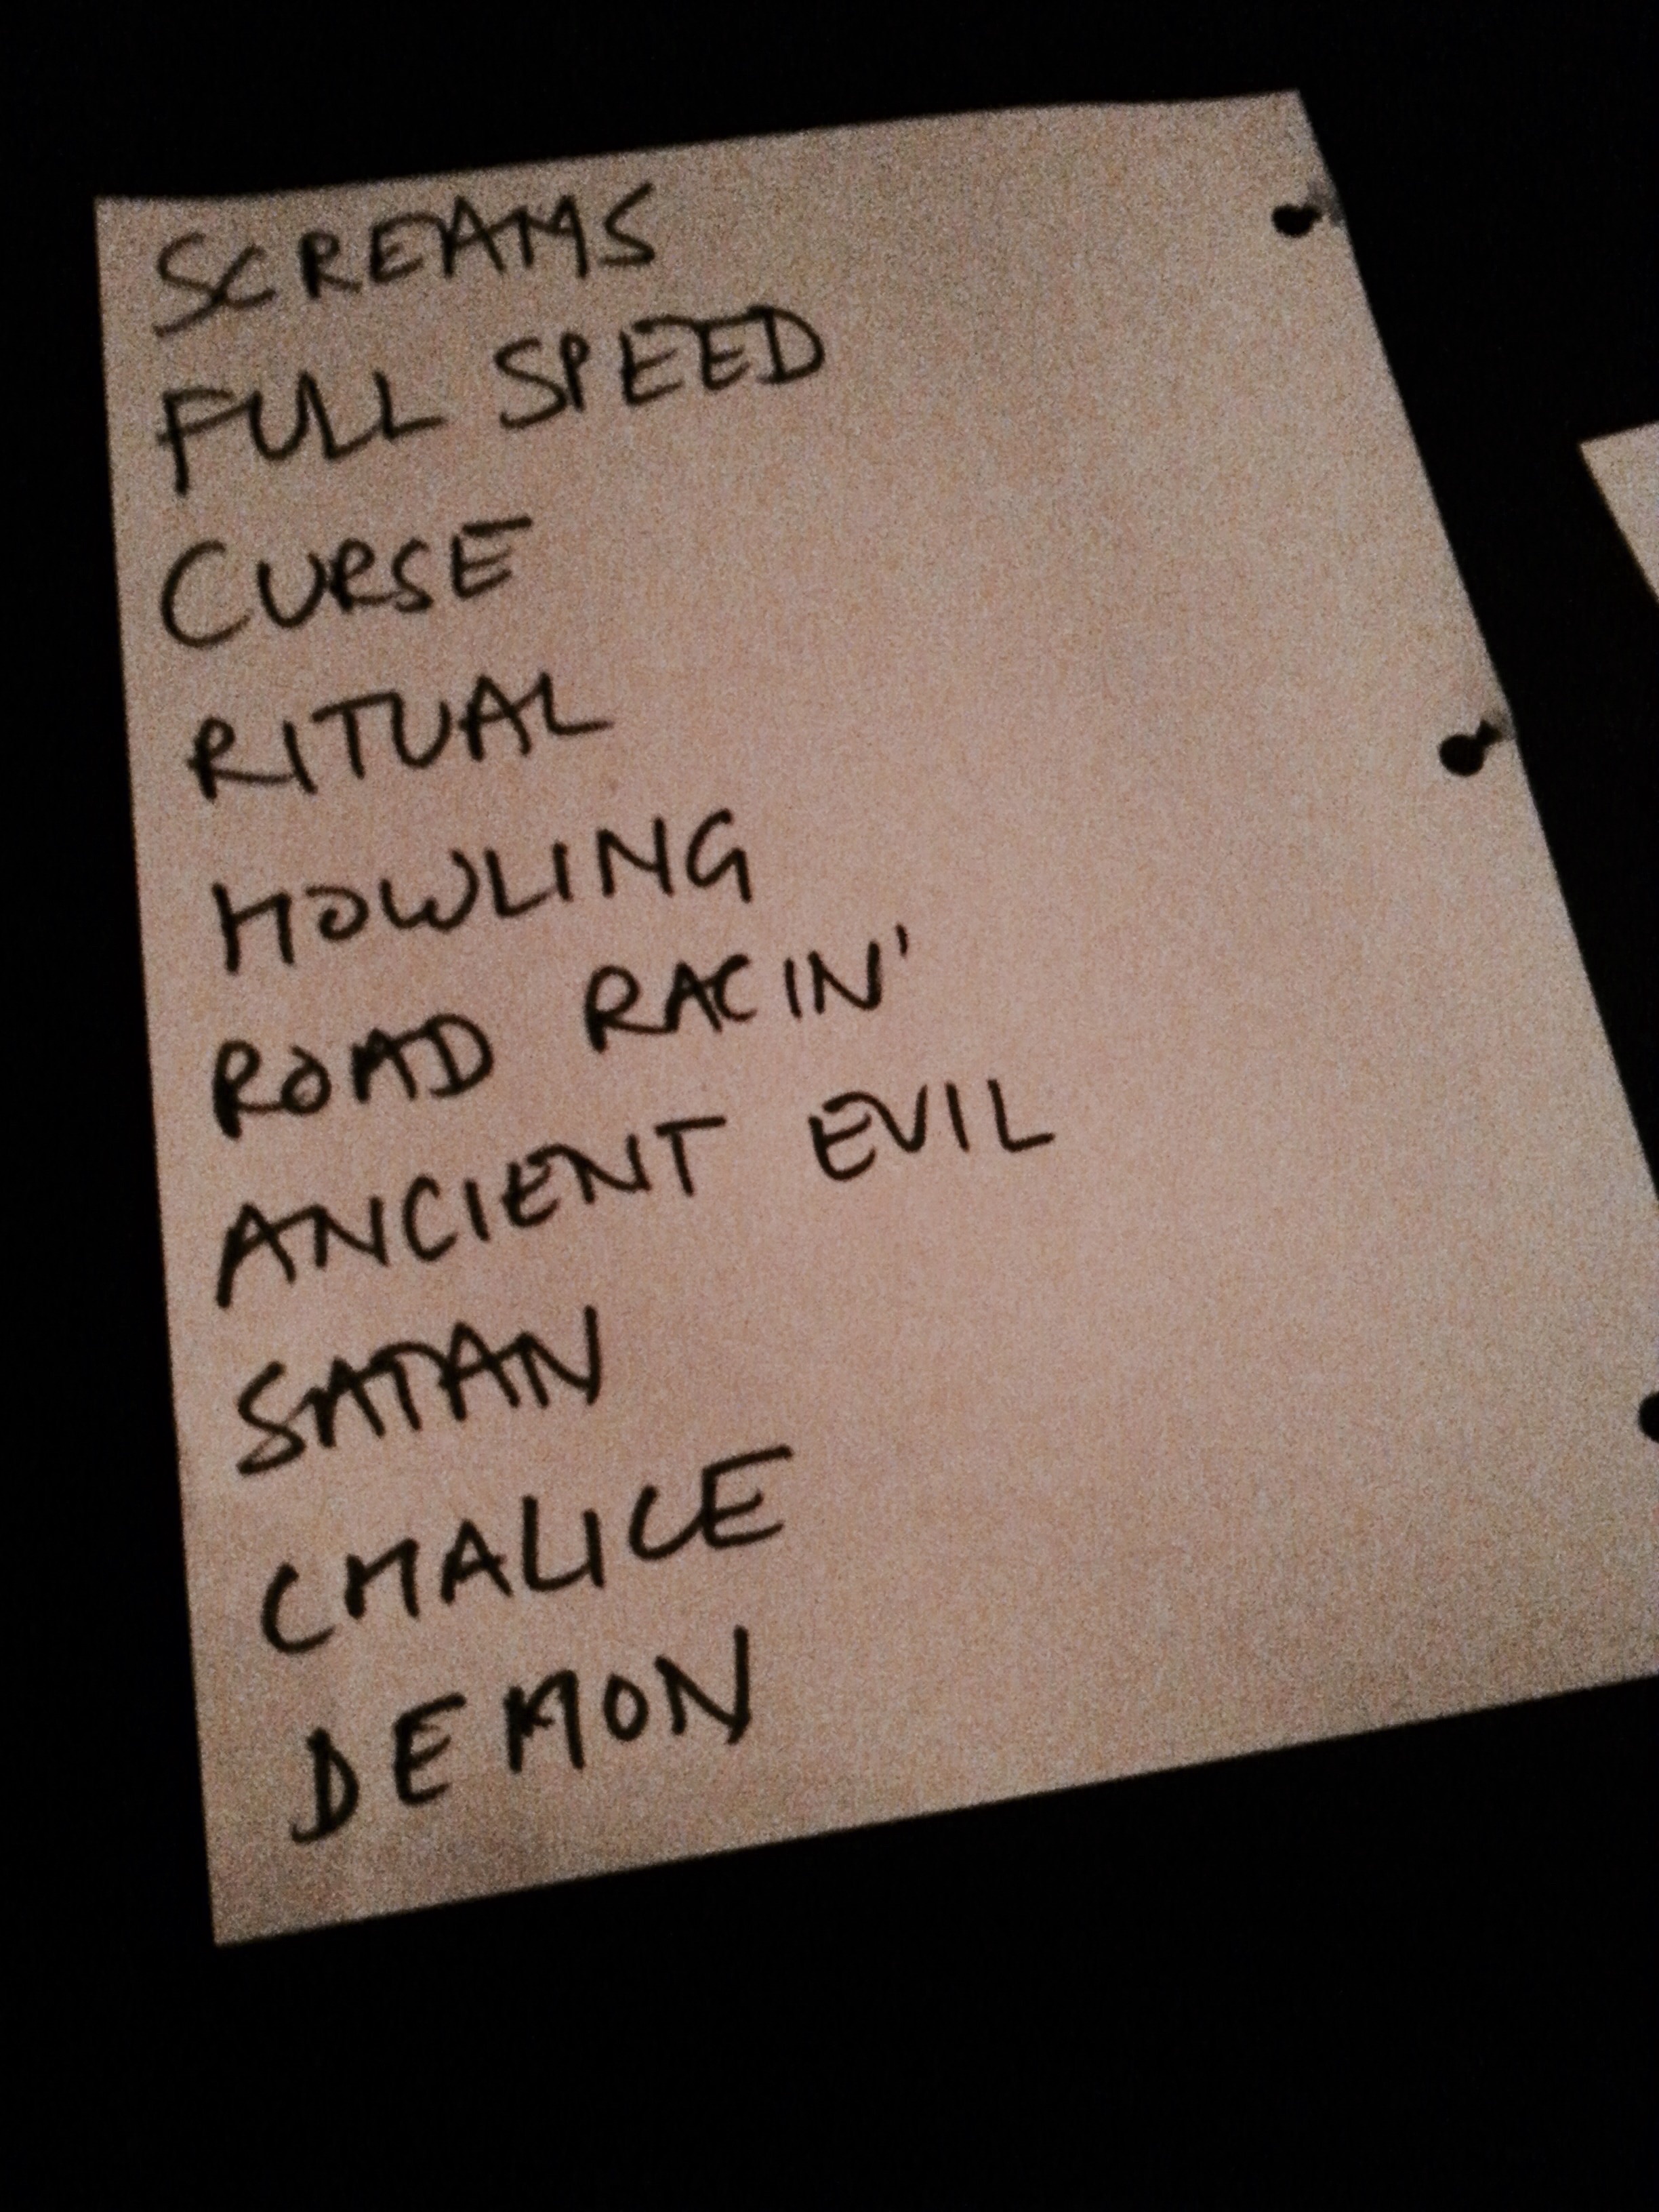 SCREAMS
FULL SPEED
CURSE
RITUAL
HOWLING
ROAD RACIN'
ANCIENT EVIL
SATAN
CHALICE
DEMON